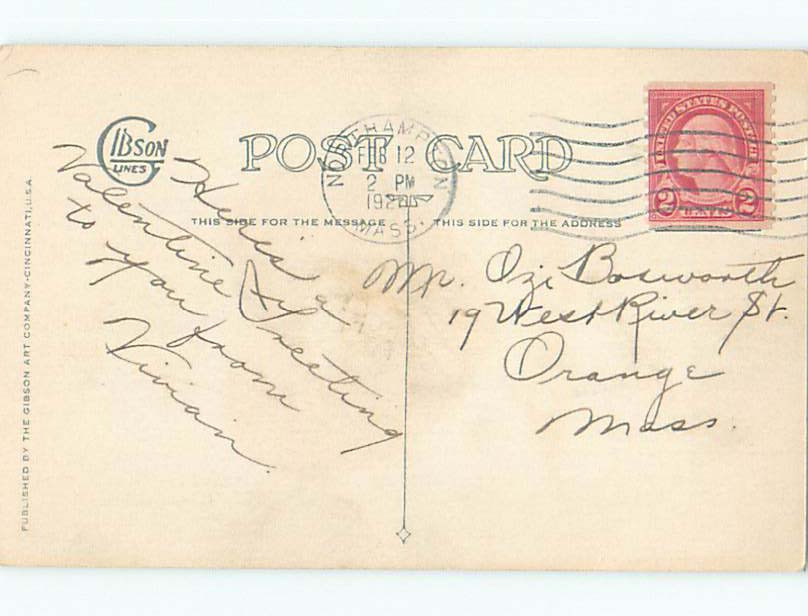 GIBSON
LINES
POST CARD
NORTHAMPTON
FEB 12
2 PM
MASS.
UNITED STATES POSTAGE
2 CENTS 2
THIS SIDE FOR THE MESSAGE
THIS SIDE FOR THE ADDRESS
Here's a
Valentine Greeting
to you from
Vivian.
Mr. Ozi Bosworth
19 West River St.
Orange
Mass.
PUBLISHED BY THE GIBSON ART COMPANY-CINCINNATI, U.S.A.